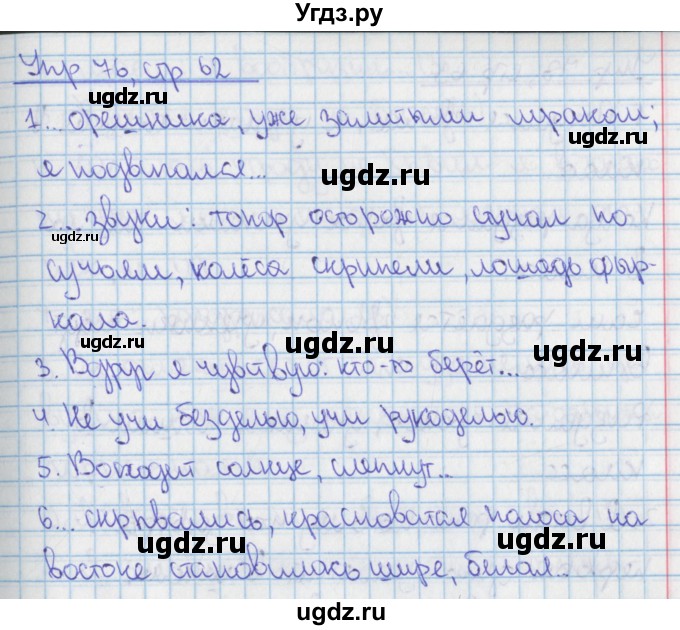 Угдз.ру
Упр 76, стр 62
1... орешника, уже залитыми мраком;
я подвигался...
2... звуки: топор осторожно стучал по
сучьям, колёса скрипели, лошадь фыр-
кала.
3. Вдруг я чувствую: кто-то берёт...
4. Не учи безделью, учи рукоделью.
5. Восходит солнце,
6... скрывались, красноватая полоса на
востоке становилась шире, белая...
ugdz.ru
ugdz.ru
ugdz.ru
ugdz.ru
ugdz.ru
ugdz.ru
ugdz.ru
ugdz.ru
ugdz.ru
ugdz.ru
ugdz.ru
ugdz.ru